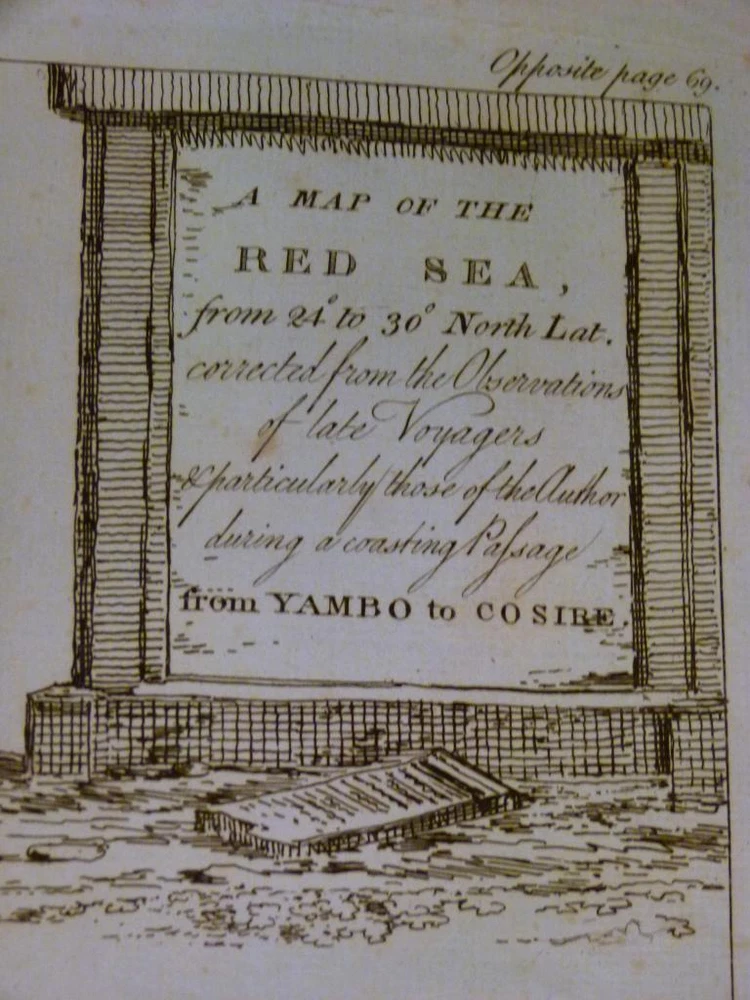 Opposite page 69.
A MAP OF THE
RED SEA,
from 24° to 30° North Lat.
corrected from the Observations
of late Voyagers
& particularly those of the Author
during a coasting Paſsage
from YAMBO to COSIRE.